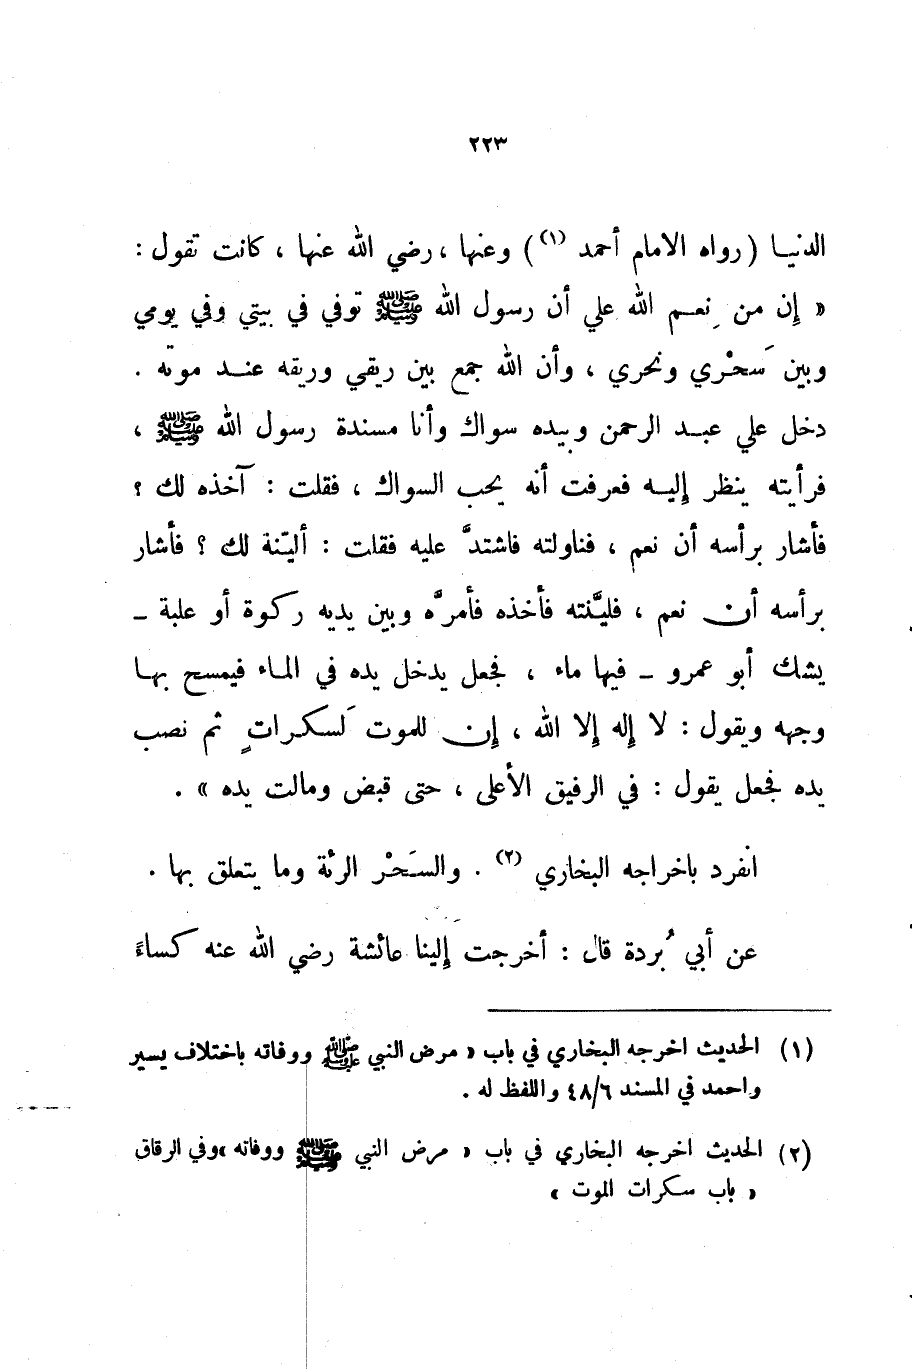 ٢٢٣
الدنيا (رواه الامام أحمد (١)) وعنها ، رضي الله عنها ، كانت تقول :
« إن من نِعم الله علي أن رسول الله ﷺ توفي في بيتي وفي يومي
وبين سَحْري ونحري ، وأن الله جمع بين ريقي وريقه عند موته .
دخل علي عبد الرحمن وبيده سواك وأنا مسندة رسول الله ﷺ ،
فرأيته ينظر إليه فعرفت أنه يحب السواك ، فقلت : آخذه لك ؟
فأشار برأسه أن نعم ، فناولته فاشتدَّ عليه فقلت : أليّنة لك ؟ فأشار
برأسه أن نعم ، فليَّنته فأخذه فأمرَّه وبين يديه ركوة أو علبة ـ
يشك أبو عمرو ـ فيها ماء ، فجعل يدخل يده في الماء فيمسح بها
وجهه ويقول : لا إله إلا الله ، إن للموت لَسكراتٍ ثم نصب
يده فجعل يقول : في الرفيق الأعلى ، حتى قبض ومالت يده » .
انفرد باخراجه البخاري (٢) . والسَحْر الرئة وما يتعلق بها .
عن أبي بُردة قال : أخرجت إلينا عائشة رضي الله عنه كساءً
(١) الحديث اخرجه البخاري في باب « مرض النبي ﷺ ووفاته باختلاف يسير
واحمد في المسند ٤٨/٦ واللفظ له .
(٢) الحديث اخرجه البخاري في باب « مرض النبي ﷺ ووفاته » وفي الرقاق
« باب سكرات الموت »